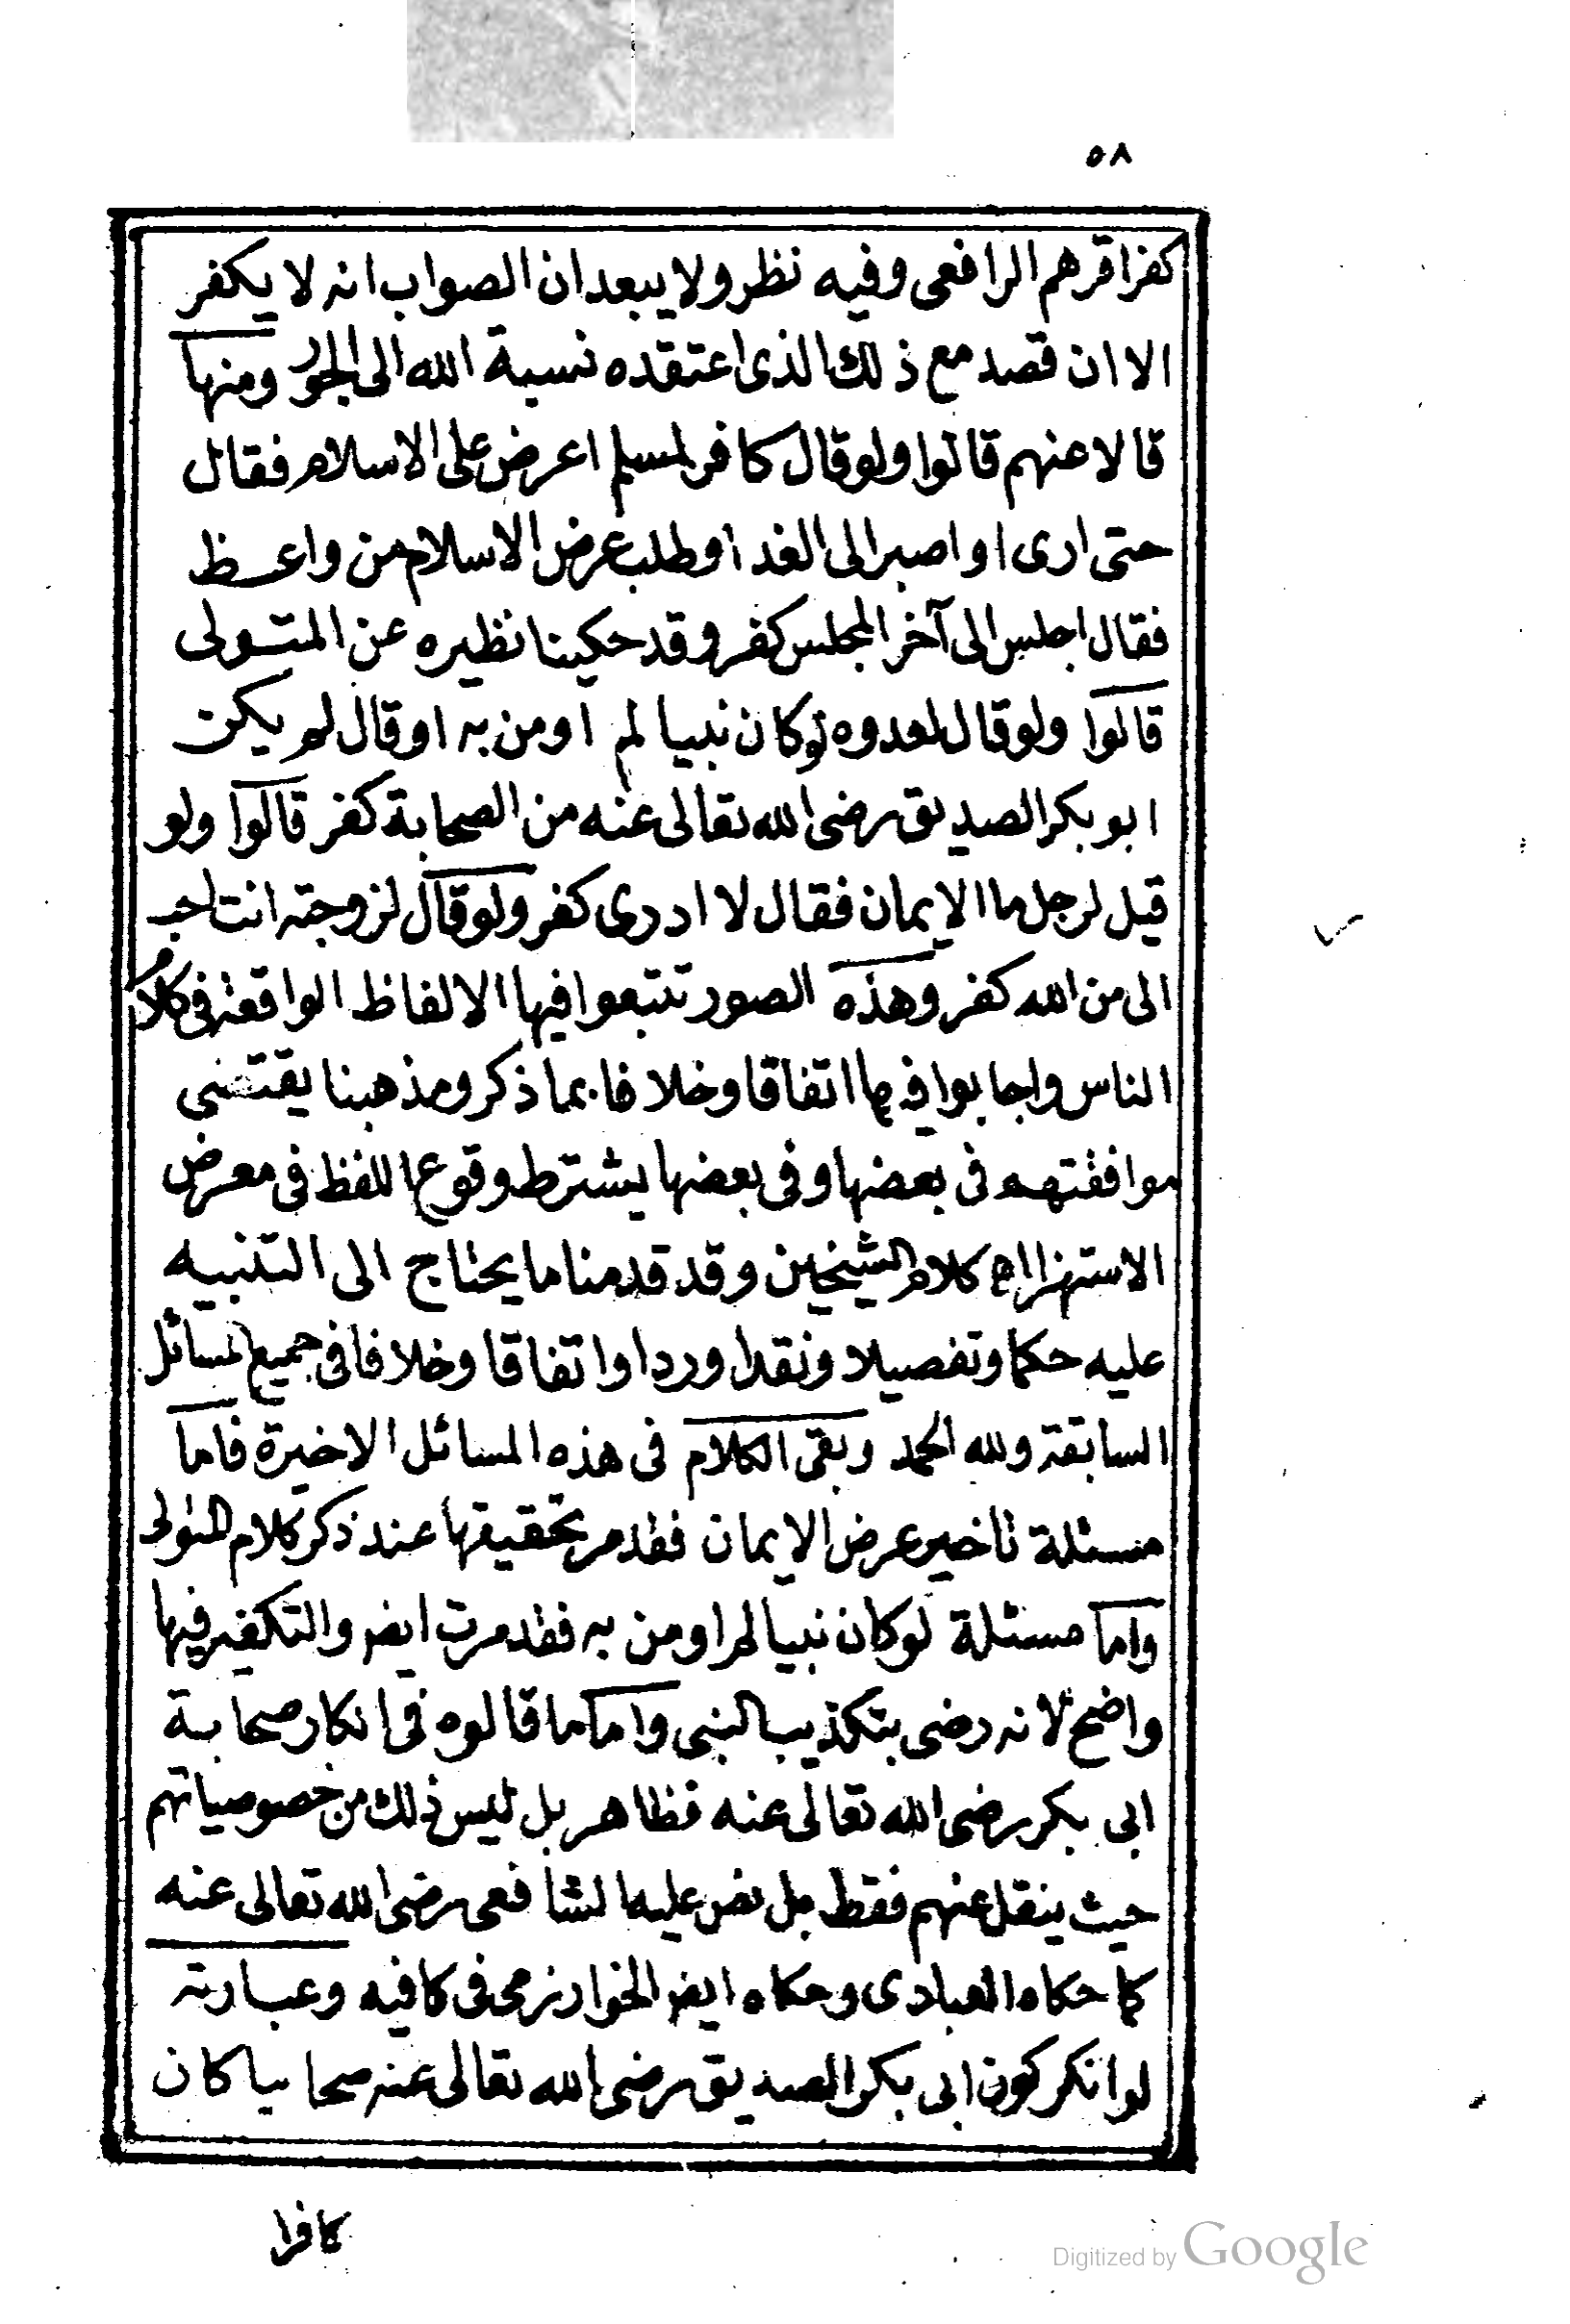 ٥٨
كفرا قرهم الرافعى وفيه نظر ولا يبعد ان الصواب انه لا يكفر
الا ان قصد مع ذلك الذى اعتقده نسبة الله الى الجور ومنها
قالا عنهم قالوا ولو قال كافر لمسلم اعرض على الاسلام فقال
حتى ارى او اصبر الى الغد او طلب عرض الاسلام من واعظ
فقال اجلس الى آخر المجلس كفر وقد حكينا نظيره عن المتولى
قالوا ولو قال لعدوه لو كان نبيا لم اومن به او قال لم يكن
ابو بكر الصديق رضى الله تعالى عنه من الصحابة كفر قالوا ولو
قيل لرجل ما الايمان فقال لا ادرى كفر ولو قال لزوجته انت احب
الى من الله كفر وهذه الصور تتبعوا فيها الالفاظ الواقعة فى كلام
الناس واجابوا فيها اتفاقا وخلافا بما ذكر ومذهبنا يقتضى
موافقتهم فى بعضها وفى بعضها يشترط وقوع اللفظ فى معرض
الاستهزا اه كلام الشيخين وقد قدمنا ما يحتاج الى التنبيه
عليه حكما وتفصيلا ونقدا وردا واتفاقا وخلافا فى جميع المسائل
السابقة ولله الحمد وبقى الكلام فى هذه المسائل الاخيرة فاما
مسئلة تاخير عرض الايمان فقد مر تحقيقها عند ذكر كلام المتولى
واما مسئلة لو كان نبيا لم اومن به فقد مرت ايضر والتكفير فيها
واضح لانه رضى بتكذيب النبى واما ما قالوه فى انكار صحابة
ابى بكر رضى الله تعالى عنه فظاهر بل ليس ذلك من خصوصياتهم
حيث ينقل عنهم فقط بل نص عليه الشافعى رضى الله تعالى عنه
كما حكاه العبادى وحكاه ايضر الخوارزمى فى كافيه وعبارته
لو انكر كون ابى بكر الصديق رضى الله تعالى عنه صحابيا كان
كافرا
Digitized by Google